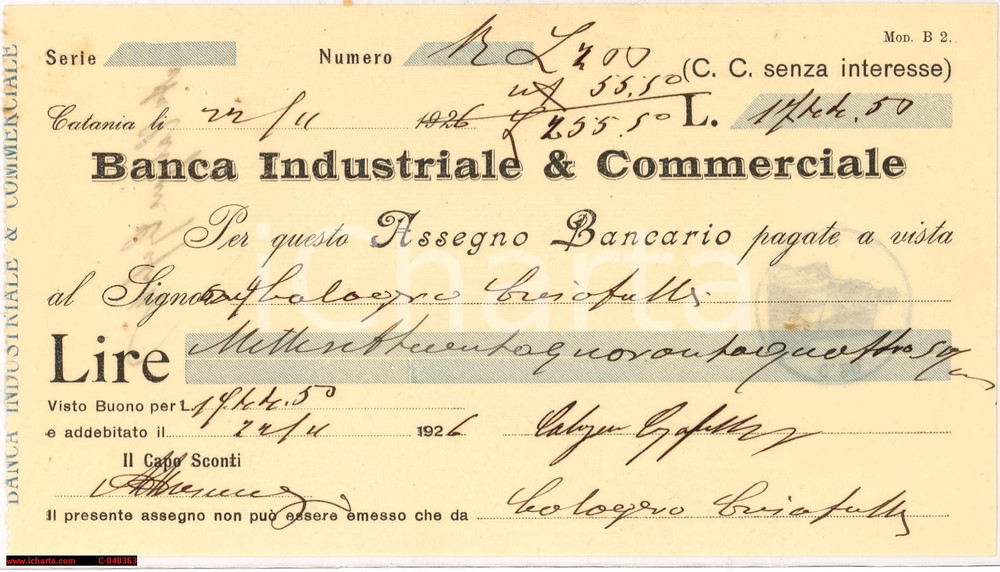 Mod. B 2.
Serie
Numero
L 200
(C. C. senza interesse)
55,50
Catania li 22/11 1926
L 255.50
L. 1744.50
Banca Industriale & Commerciale
Per questo Assegno Bancario pagate a vista
al Signor Calogero Crisafulli
Lire Millesettecentoquarantaquattro
Visto Buono per L. 1744.50
e addebitato il 22/11 1926
Calogero Crisafulli
Il Capo Sconti
Il presente assegno non può essere emesso che da Calogero Crisafulli
BANCA INDUSTRIALE & COMMERCIALE
iCharta
www.icharta.com C-040363